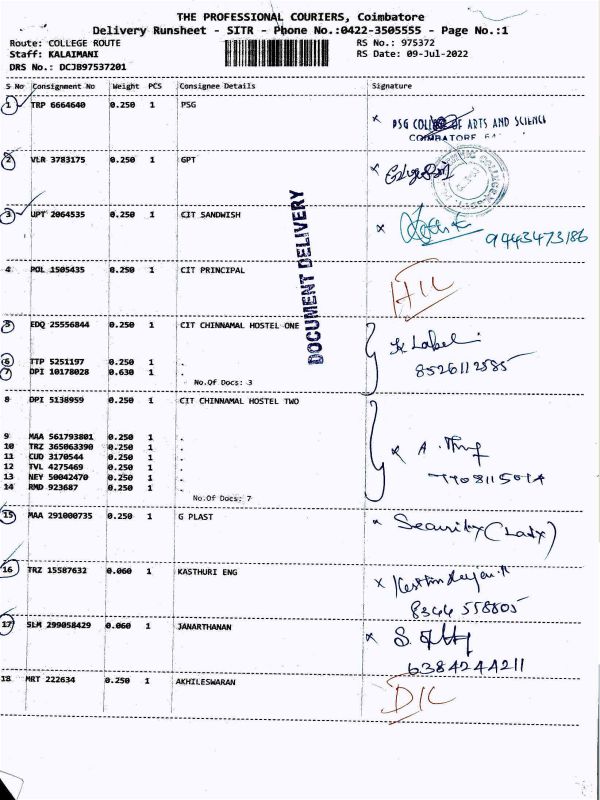 THE PROFESSIONAL COURIERS, Coimbatore
Delivery Runsheet - SITR - Phone No.:0422-3505555 - Page No.:1
Route: COLLEGE ROUTE RS No.: 975372
Staff: KALAIMANI RS Date: 09-Jul-2022
DRS No.: DCJB97537201
S No Consignment No Weight PCS Consignee Details Signature
1 TRP 6664640 0.250 1 PSG
x PSG COLLEGE OF ARTS AND SCIENCE
COIMBATORE 641
2 VLR 3783175 0.250 1 GPT
3 UPT 2064535 0.250 1 CIT SANDWISH
x 9443473186
DOCUMENT DELIVERY
4 POL 1505435 0.250 1 CIT PRINCIPAL
5 EDQ 25556844 0.250 1 CIT CHINNAMAL HOSTEL ONE
6 TTP 5251197 0.250 1 .
7 DPI 10178028 0.630 1 .
No.Of Docs: 3
8526112585
8 DPI 5138959 0.250 1 CIT CHINNAMAL HOSTEL TWO
9 MAA 561793801 0.250 1 .
10 TRZ 365063390 0.250 1 .
11 CUD 3170544 0.250 1 .
12 TVL 4275469 0.250 1 .
13 NEY 50042470 0.250 1 .
14 RMD 923687 0.250 1 .
No.Of Docs: 7
15 MAA 291000735 0.250 1 G PLAST
x Security (Lady)
16 TRZ 15587632 0.060 1 KASTHURI ENG
8344 558805
17 SLM 299058429 0.060 1 JANARTHANAN
6384244211
18 MRT 222634 0.250 1 AKHILESWARAN